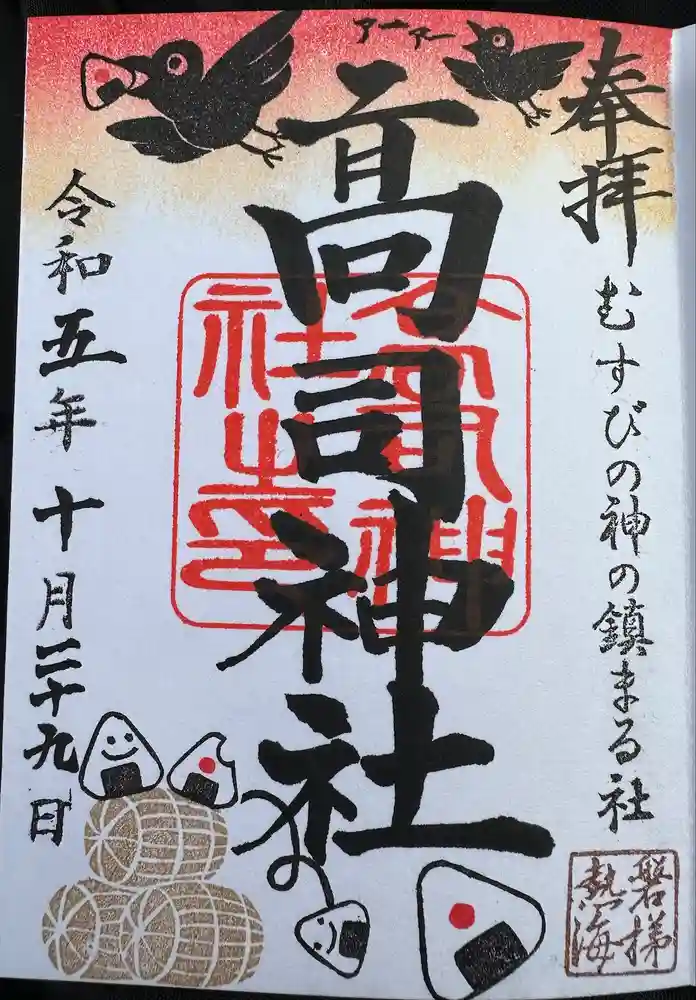 奉拝
むすびの神の鎮まる社
アーアー
高司神社
高司神社之印
令和五年十月二十九日
磐梯
熱海